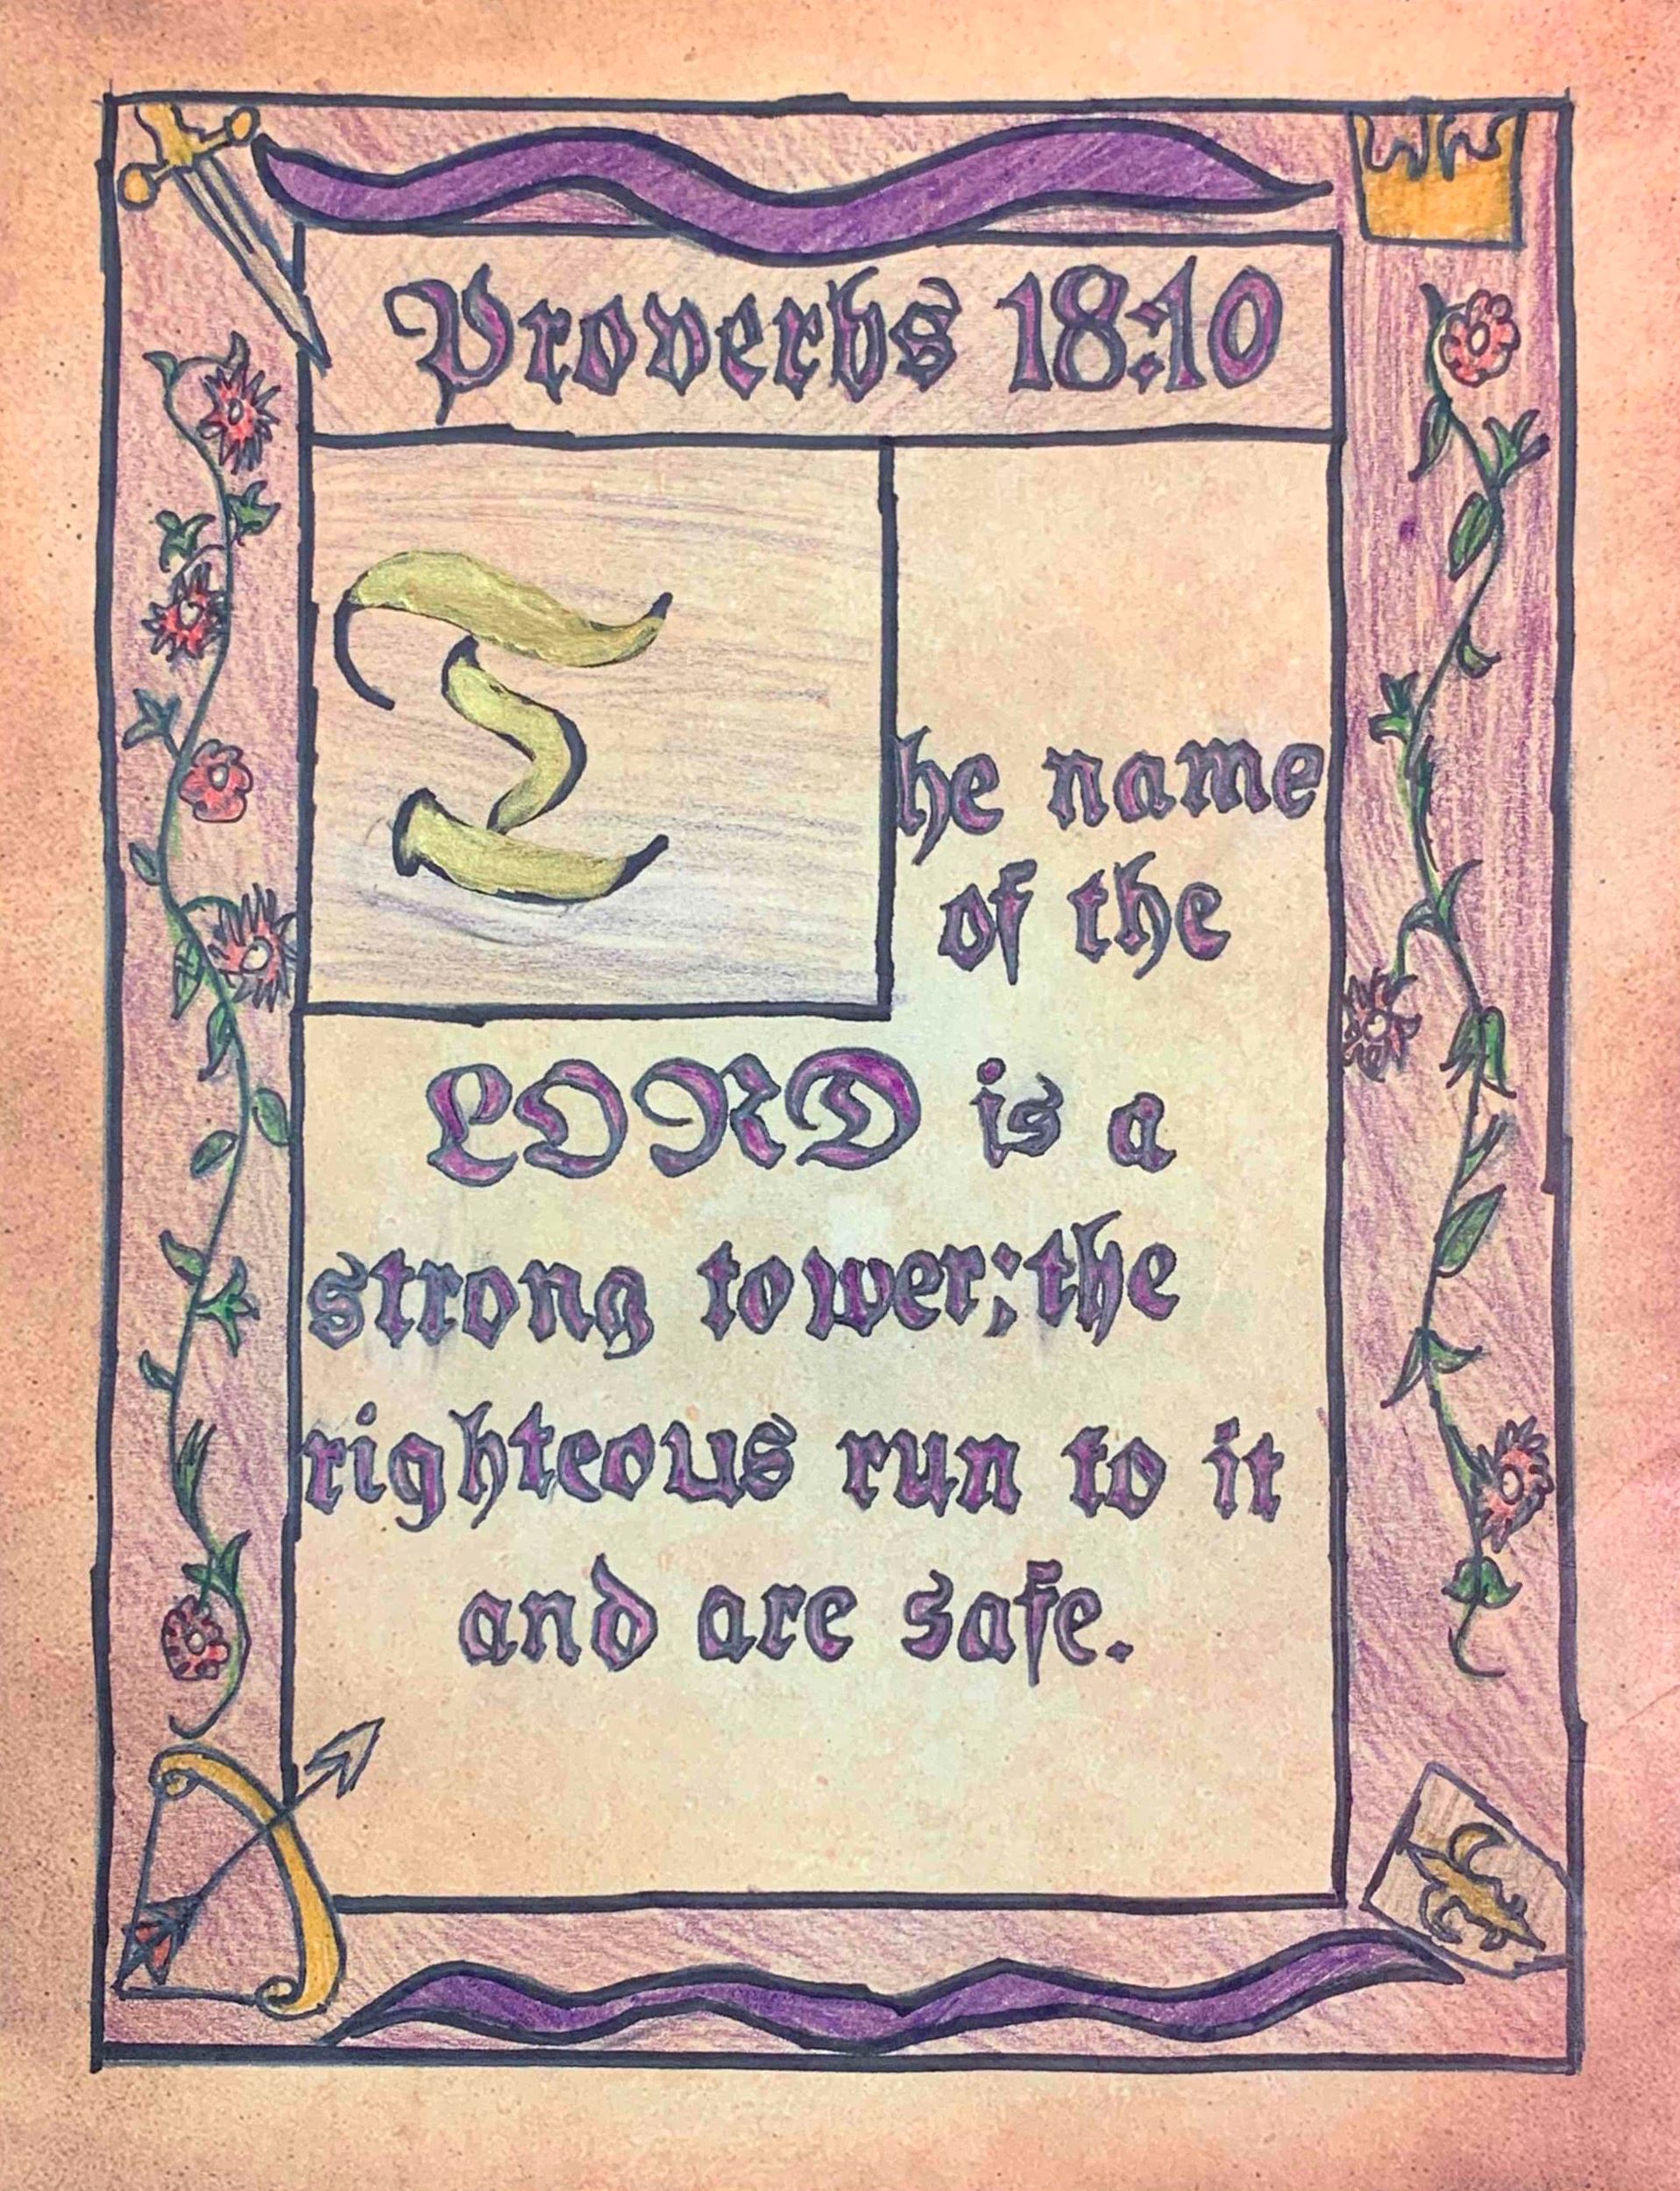 Proverbs 18:10
The name
of the
LORD is a
strong tower;the
righteous run to it
and are safe.